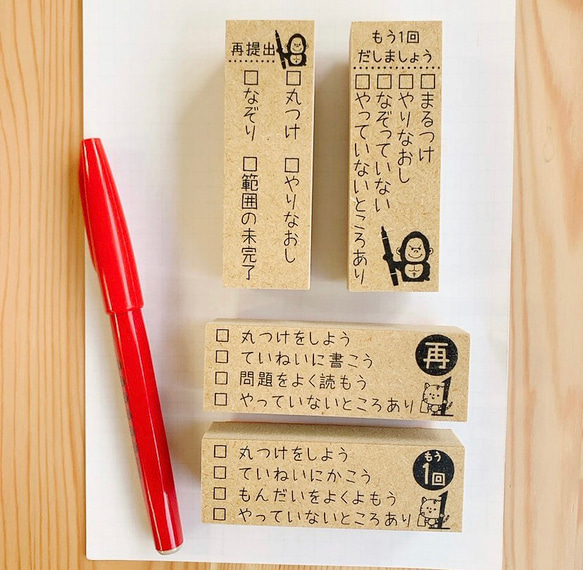 再提出
□丸つけ □やりなおし
□なぞり □範囲の未完了
もう1回
だしましょう
□まるつけ
□やりなおし
□なぞっていない
□やっていないところあり
□ 丸つけをしよう
□ ていねいに書こう
□ 問題をよく読もう
□ やっていないところあり
再
□ 丸つけをしよう
□ ていねいにかこう
□ もんだいをよくよもう
□ やっていないところあり
もう
1回